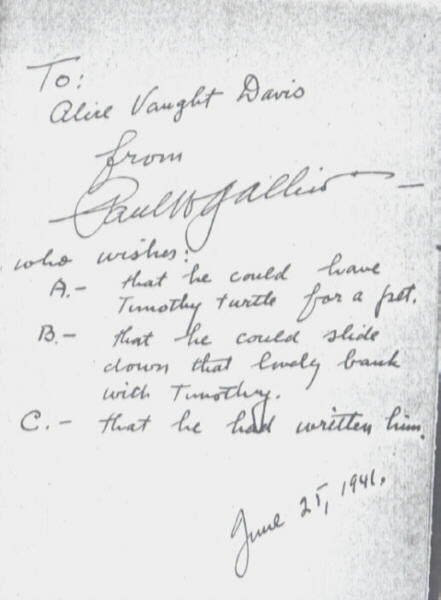 To:
Alice Vaught Davis
from
Paul W Gallico
who wishes:
A.- that he could have
Timothy turtle for a pet.
B.- that he could slide
down that lovely bank
with Timothy.
C.- that he had written him.
June 25, 1941.